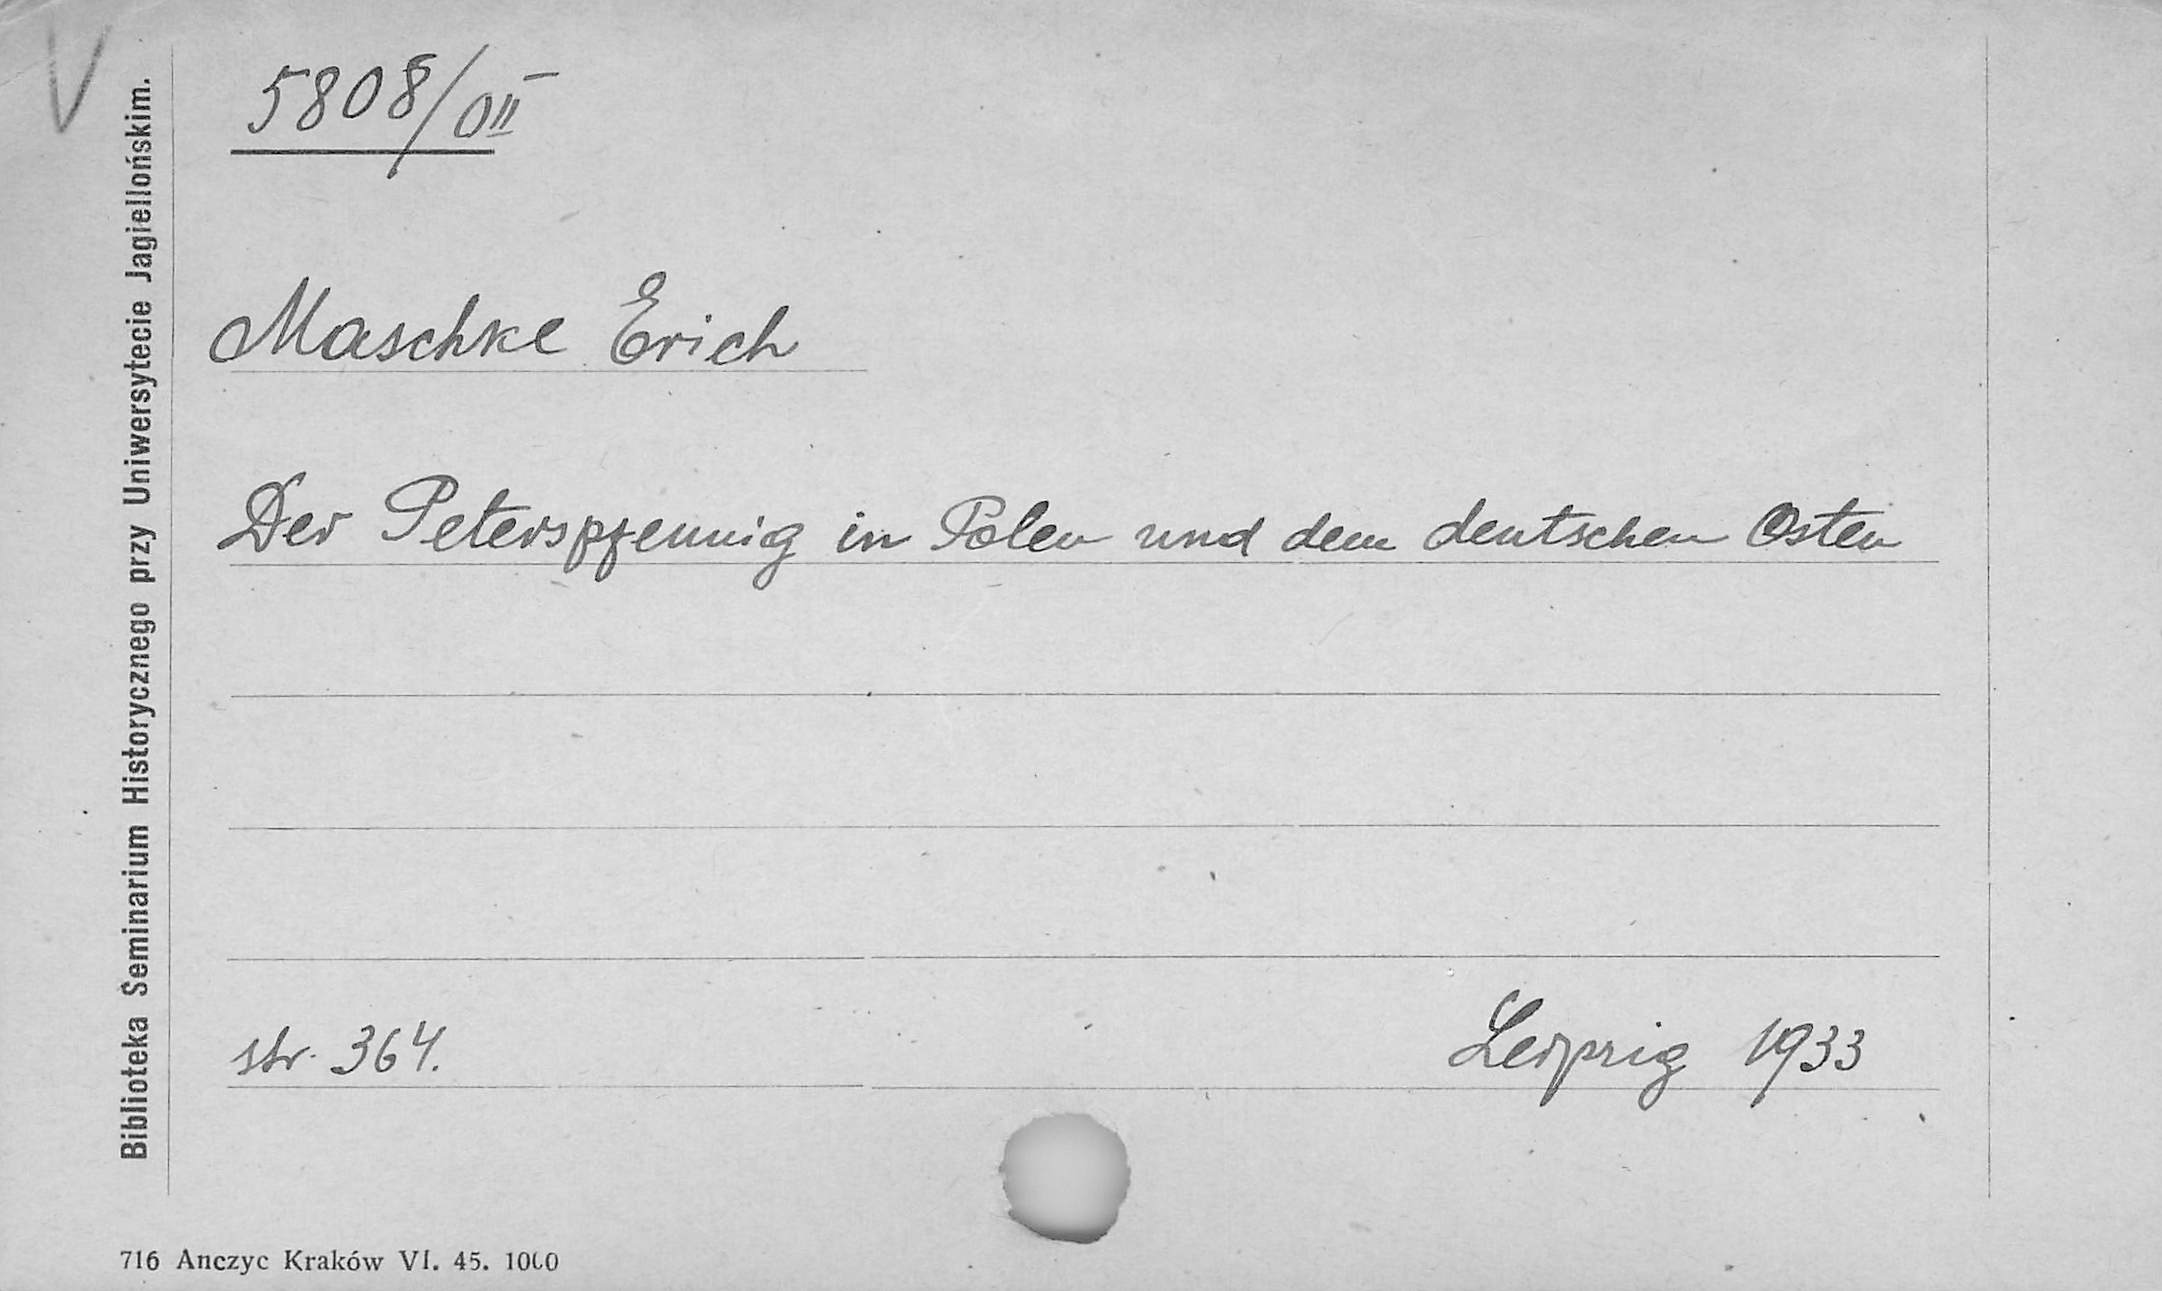 V
5808/OII
Maschke Erich
Der Peterspfennig in Polen und dem deutschen Osten
str. 364.
Leipzig 1933
Biblioteka Seminarium Historycznego przy Uniwersytecie Jagiellońskim.
716 Anczyc Kraków VI. 45. 1000